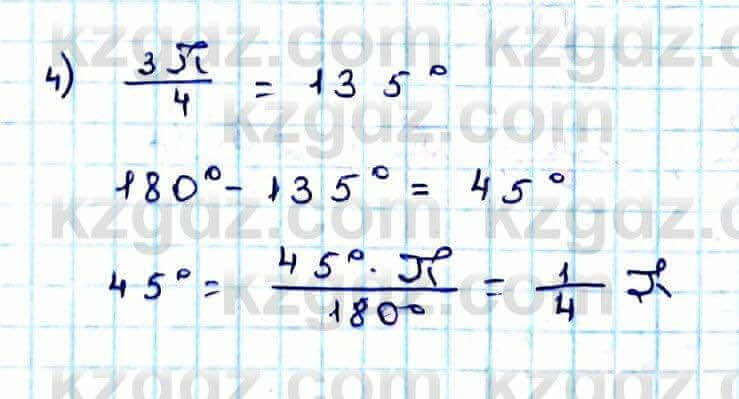 kzgdz.com
4) 3π/4 = 135°
kzgdz.com
180° - 135° = 45°
kzgdz.com
45° = 45°·π/180° = 1/4 π
kzgdz.com
kzgdz.com